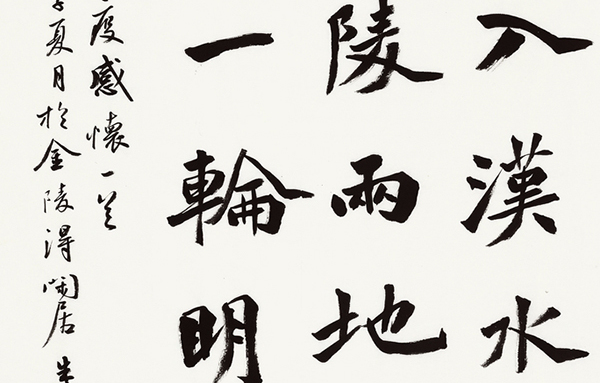 入漢水
陵兩地
一輪明
度感懷一首
夏月於金陵得閒居